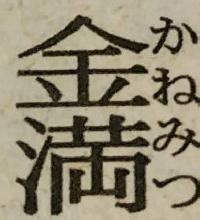 金満
かねみつ